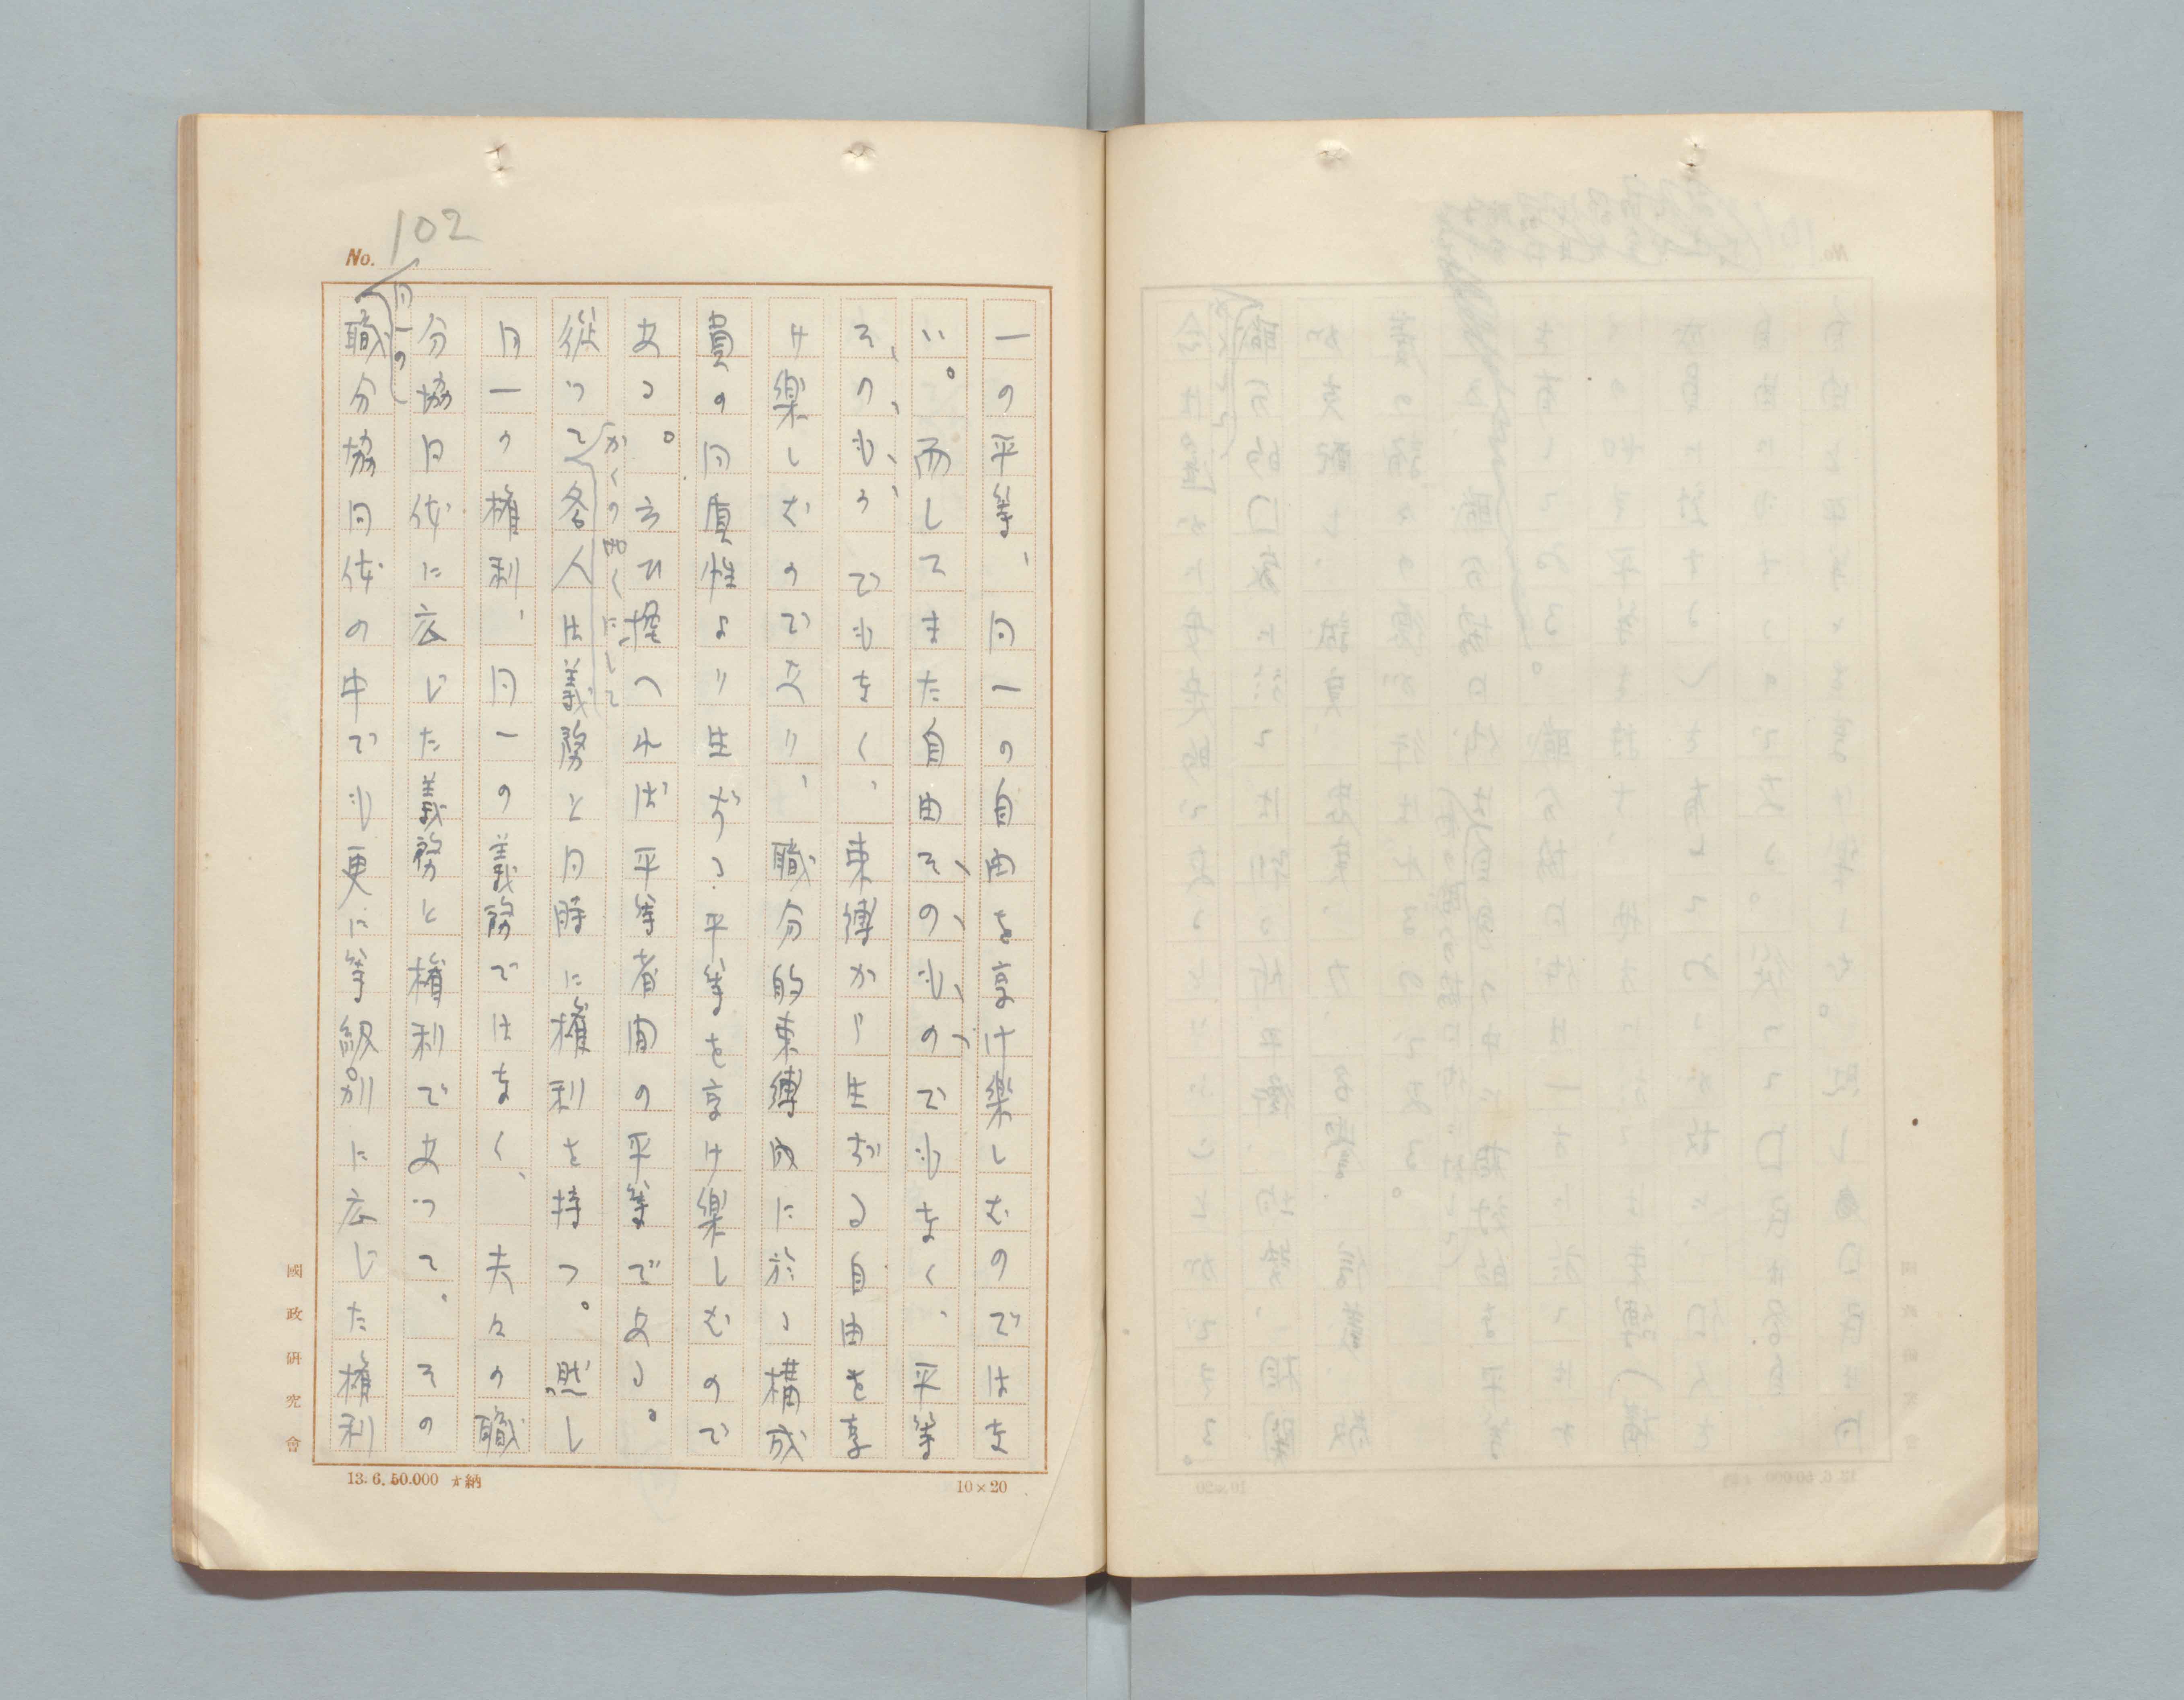 No. 102
一の平等、同一の自由を享け楽しむのではな
い。而してまた自由そのものでもなく、平等
そのものでもなく、束縛から生ずる自由を享
け楽しむのであり、職分的束縛内に於る構成
員の同質性より生ずる平等を享け楽しむので
ある。云ひ換へれば平等者間の平等である。
かくの如くにして
従って各人は義務と同時に権利を持つ。然し
同一の権利、同一の義務ではなく、夫々の職
分協同体に応じた義務と権利であって、その
同一の
職分協同体の中でも更に等級別に応じた権利
國政研究會
13.6.50.000 納
10×20